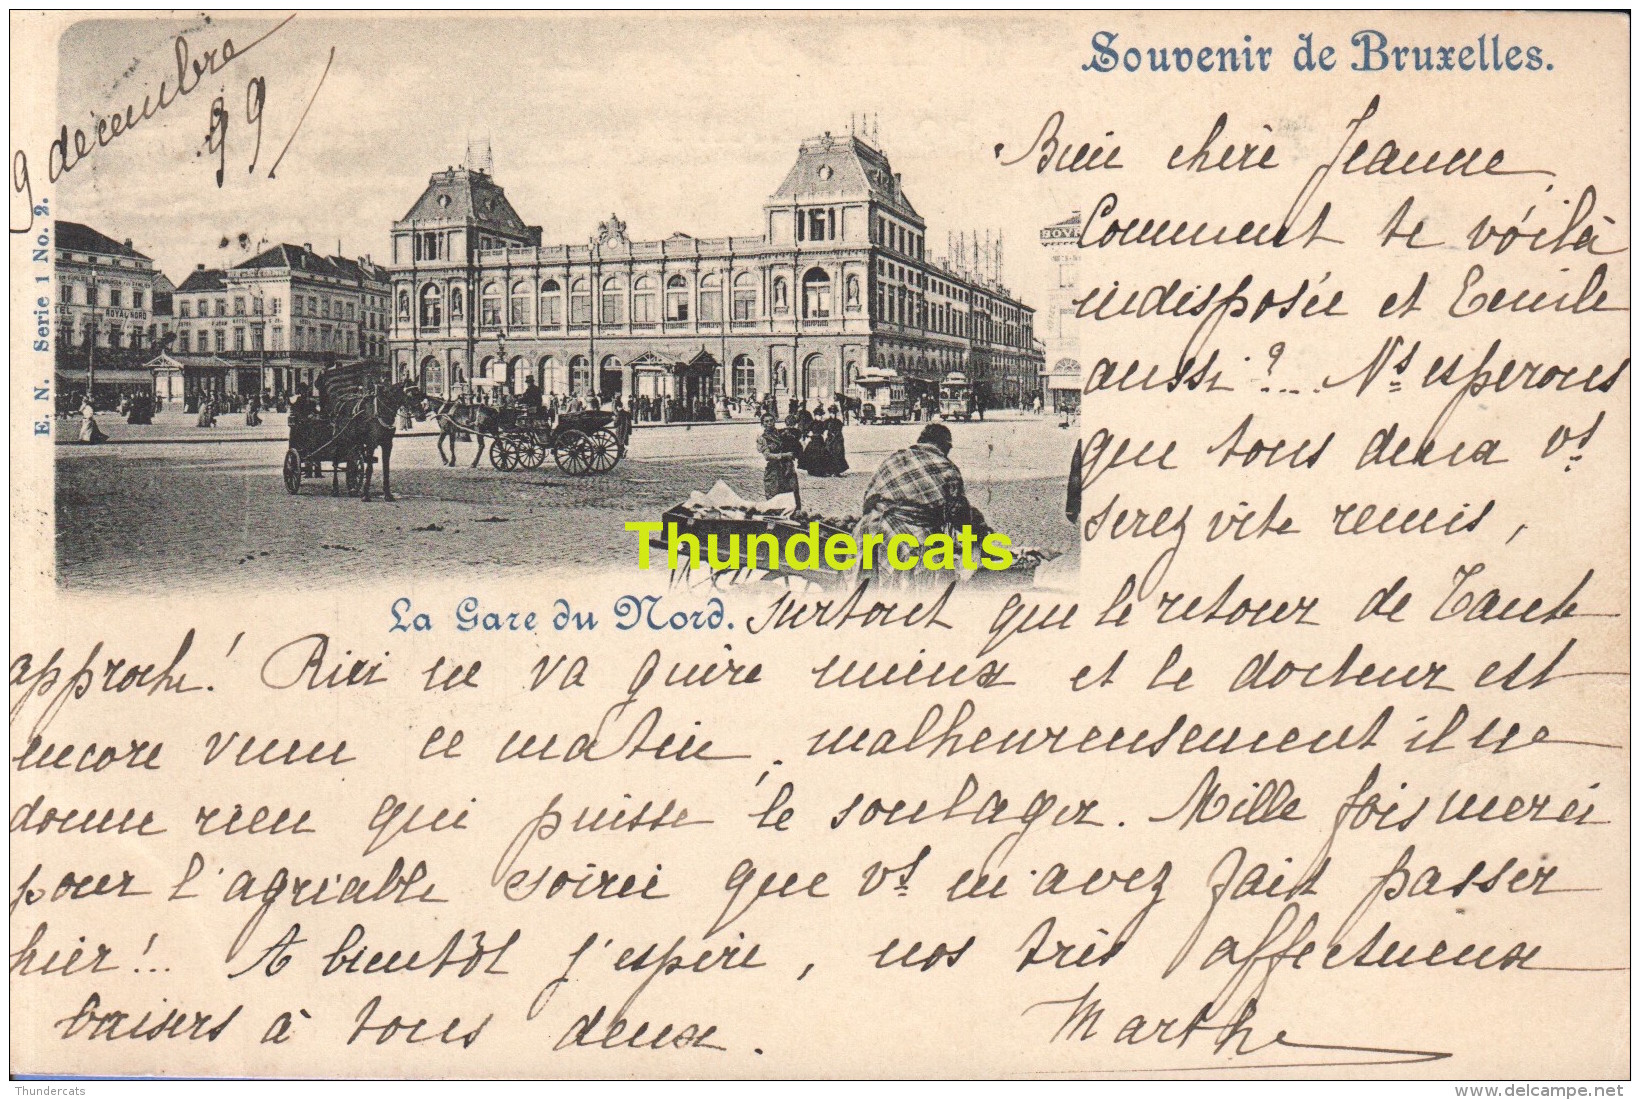 9 décembre
99
Souvenir de Bruxelles.
E. N. Serie 1 No. 2.
Bien chère Jeanne,
Comment te voilà
indisposée et Emile
aussi ?... Ns espérons
que tous deux vs
serez vite remis,
La Gare du Nord.
surtout que le retour de Tante
approche! Rici ne va guère mieux et le docteur est
encore venu ce matin, malheureusement il ne
donne rien qui puisse le soulager. Mille fois merci
pour l'agréable soirée que vs m'avez fait passer
hier!.. A bientôt j'espère, nos très affectueux
baisers à tous deux.
Marthe
ROYAL NORD
Thundercats
Thundercats
www.delcampe.net